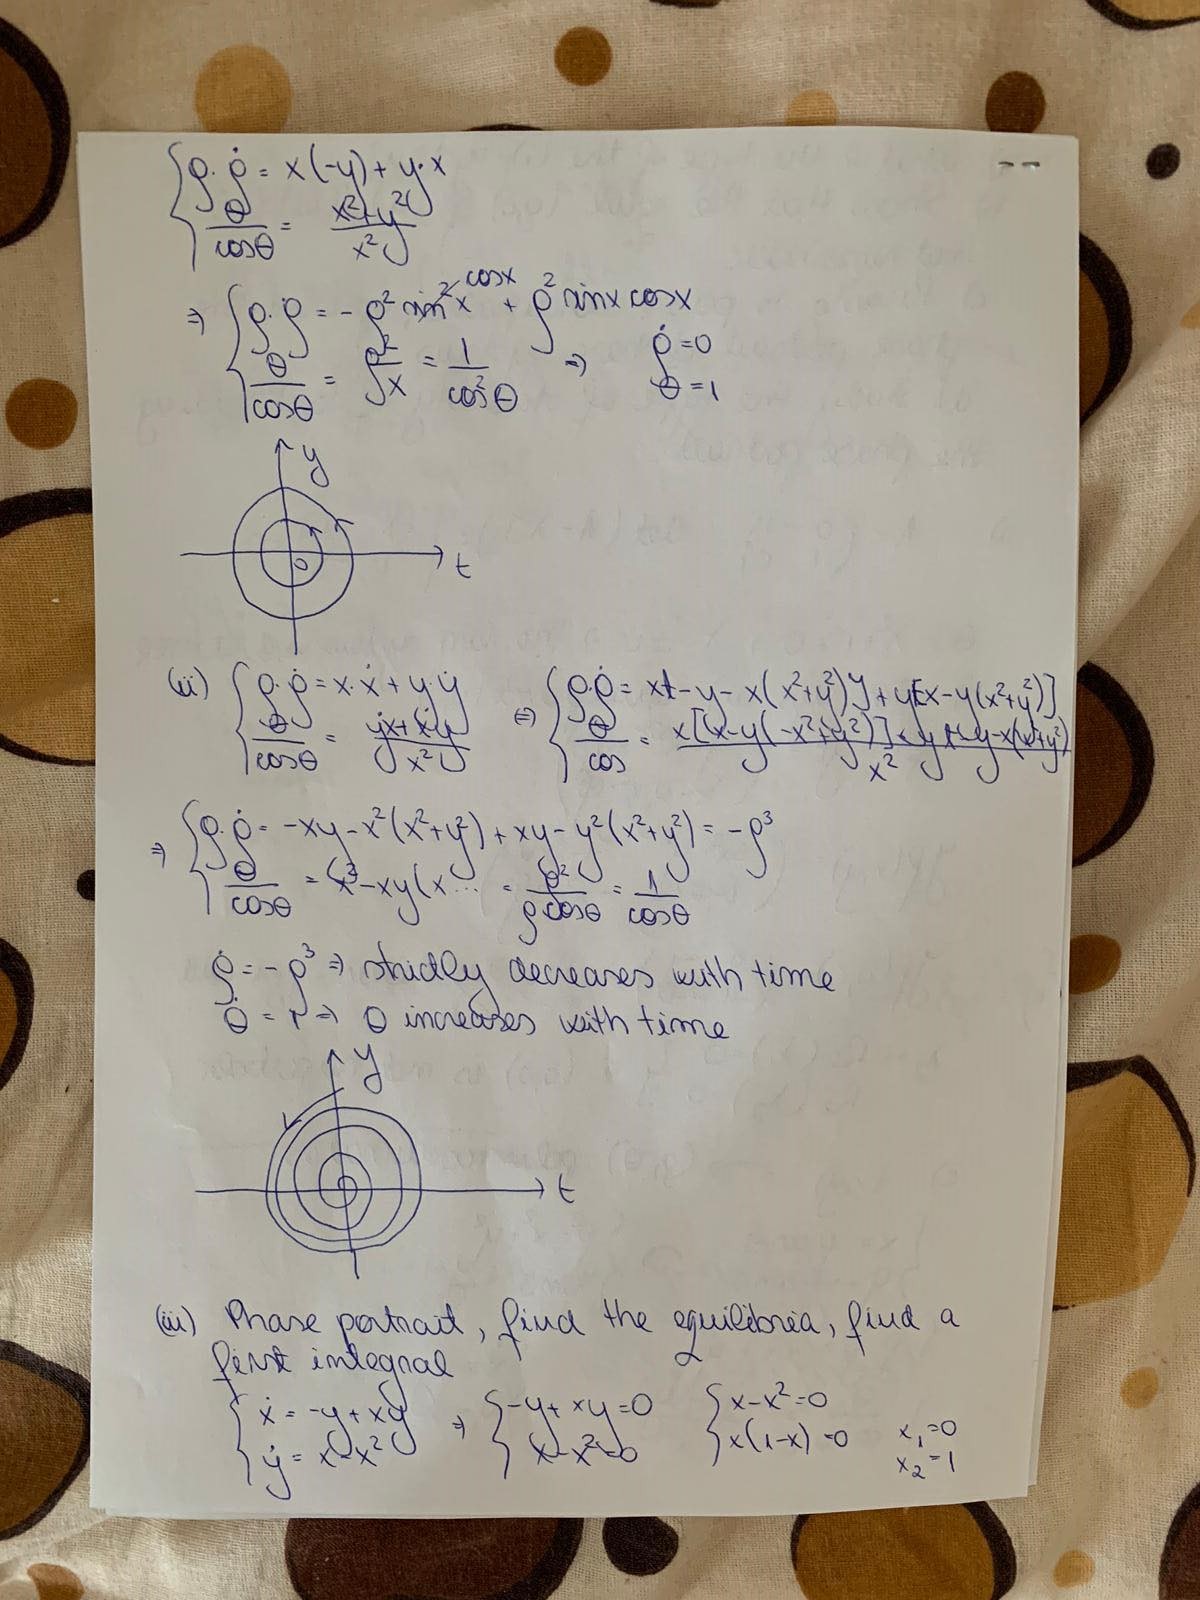 { ρ·ρ̇ = x(-y) + y·x
θ̇/cosθ = (x²+y²)/x²
⇒ { ρ·ρ̇ = -ρ² sin²x cosx + ρ² sinx cosx
θ̇/cosθ = ρ²/x = 1/cos²θ ⇒ ρ̇ = 0
θ̇ = 1
y
0
t
(ii) { ρ·ρ̇ = x·ẋ + y·ẏ ⇔ { ρ·ρ̇ = x - y - x(x²+y²)y + y[x - y(x²+y²)]
θ̇/cosθ = (ẏx + ẋy)/x² θ̇/cos = x[x - y(-x²+y²)] y - x(x²+y²) / x²
⇒ { ρ·ρ̇ = -xy - x²(x²+y²) + xy - y²(x²+y²) = -ρ³
θ̇/cosθ = x³ - xy(x ... = ρ²/ρcosθ = 1/cosθ
ρ̇ = -ρ³ ⇒ strictly decreases with time
θ̇ = 1 ⇒ θ increases with time
y
t
(iii) Phase portrait, find the equilibria, find a
first integral
{ ẋ = -y + xy ⇒ { -y + xy = 0 { x - x² = 0
ẏ = x - x² x - x² = 0 x(1-x) = 0 x₁ = 0
x₂ = 1